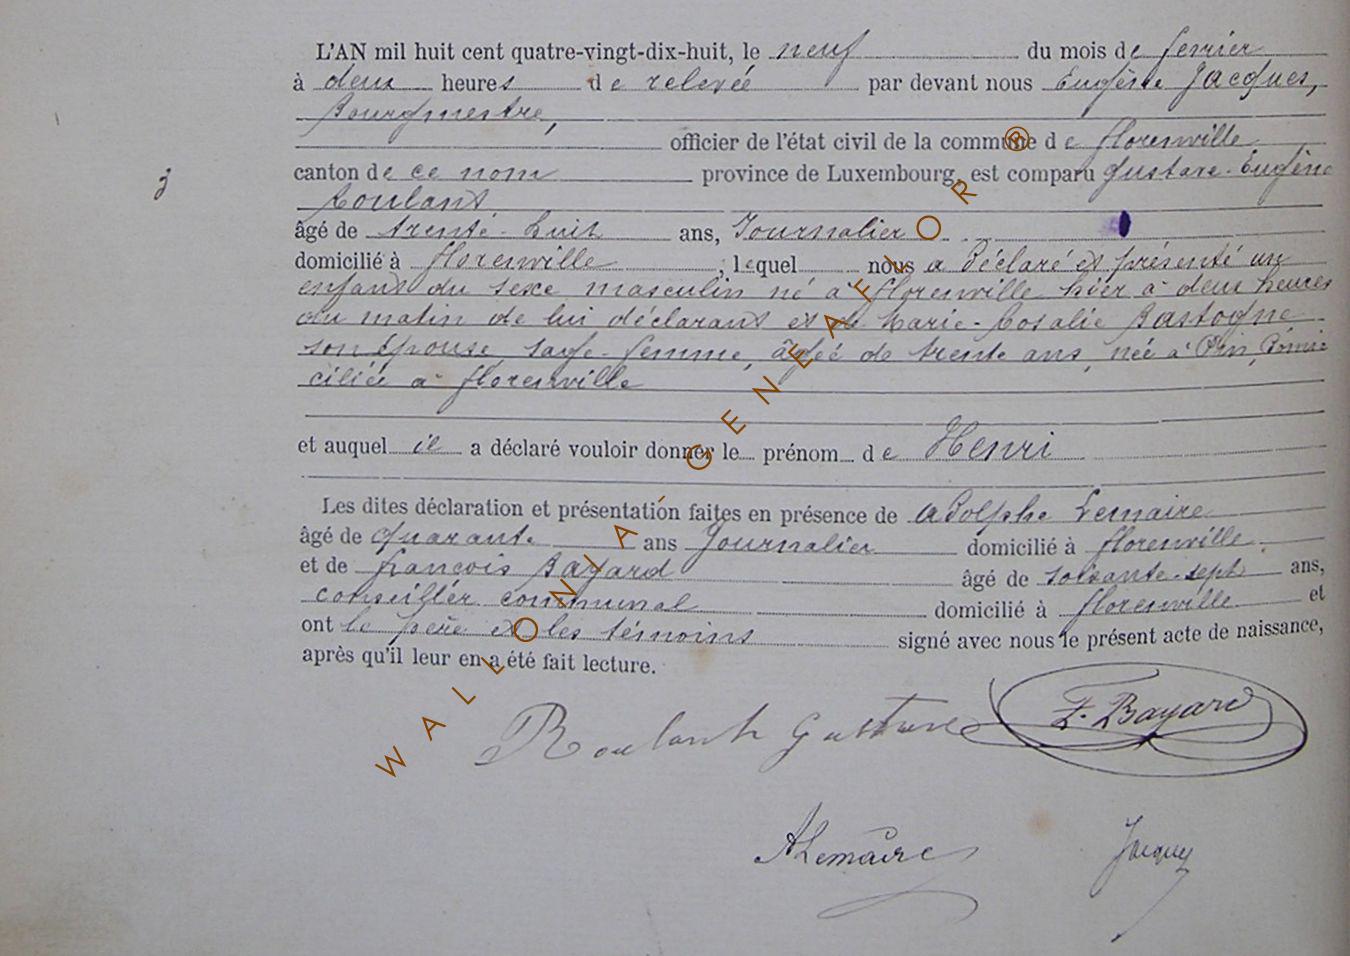 L'AN mil huit cent quatre-vingt-dix-huit, le neuf du mois de fevrier
à deux heures de relevée par devant nous Eugène Jacques,
Bourgmestre,
officier de l'état civil de la commune de florenville
canton de ce nom province de Luxembourg, est comparu Gustave-Eugène
Roulant
âgé de trente-huit ans, Journalier
domicilié à florenville, lequel nous a déclaré et présenté un
enfant du sexe masculin né à florenville hier à deux heures
du matin de lui déclarant et de Marie-Rosalie Bastogne
son épouse, sage-femme, âgée de trente ans, née à Pin, Domi-
ciliée à florenville
et auquel il a déclaré vouloir donner le prénom de Henri
Les dites déclaration et présentation faites en présence de Adolphe Lemaire
âgé de quarante ans Journalier domicilié à florenville
et de françois Bayard âgé de soixante-sept ans,
conseiller communal domicilié à florenville et
ont le père et les témoins signé avec nous le présent acte de naissance,
après qu'il leur en a été fait lecture.
Roulant Gustave F. Bayard
ALemaire Jacques
WALLONIA-GENEAFLOR®